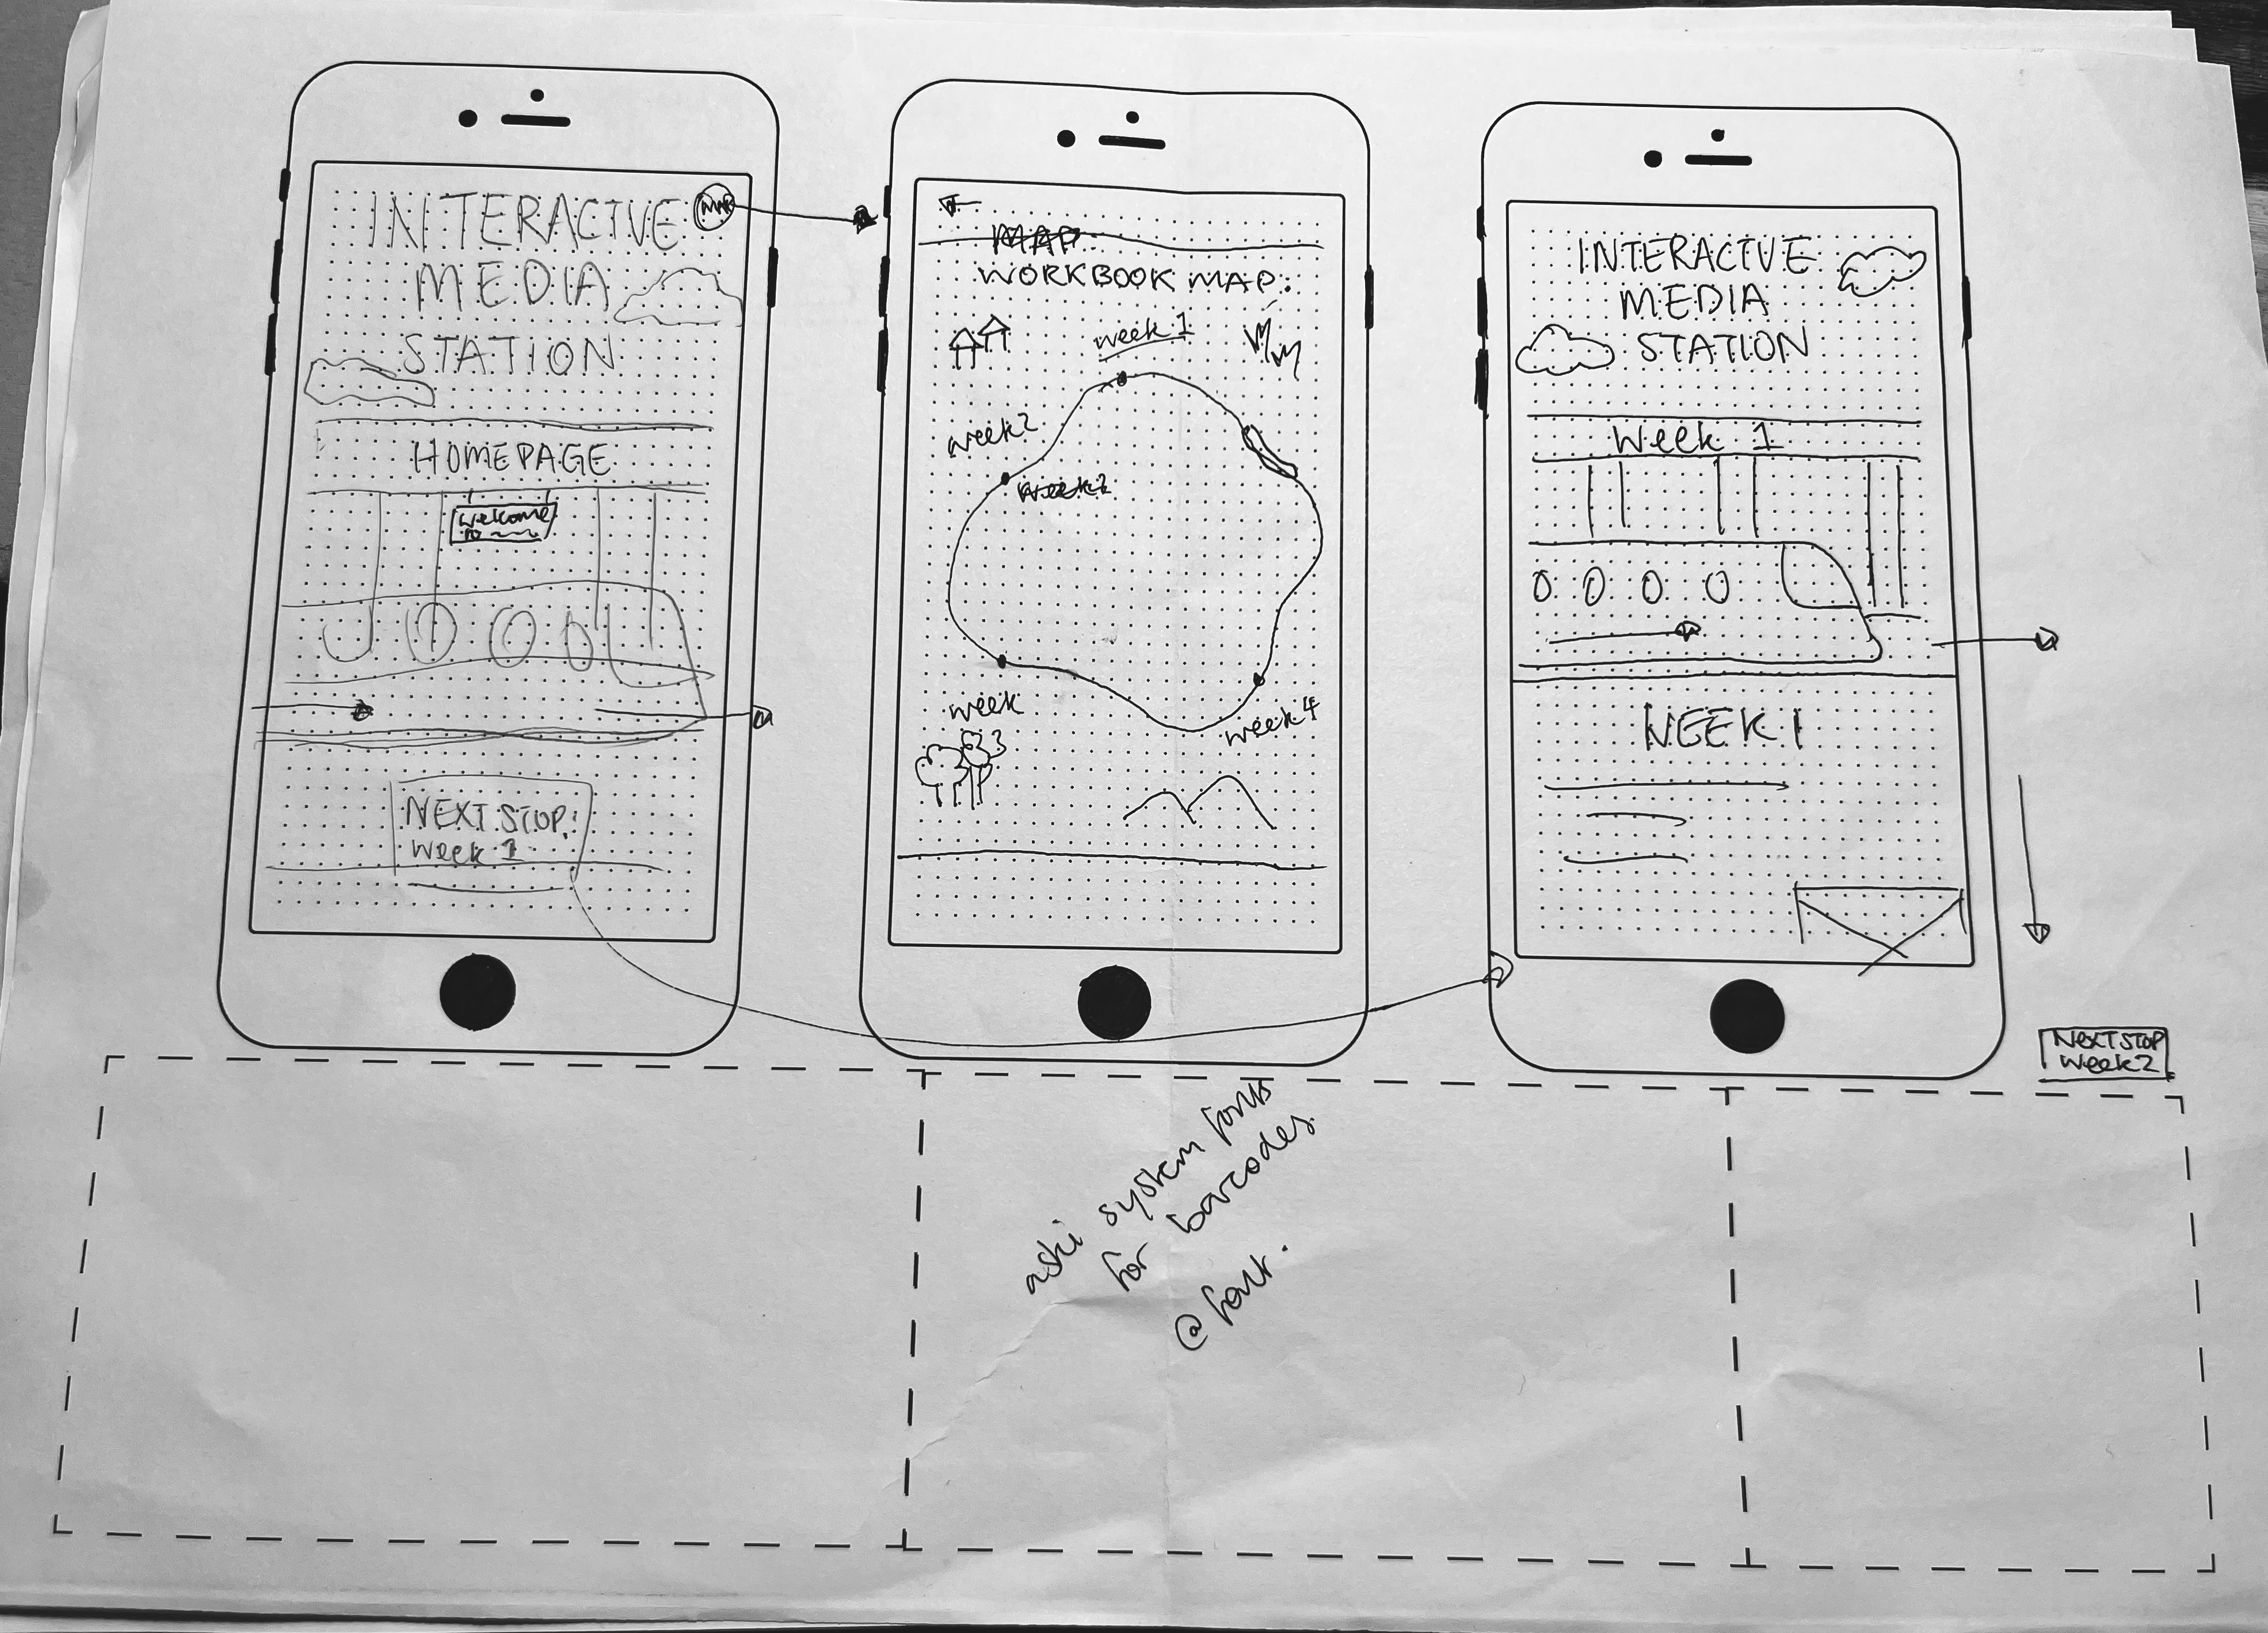 INTERACTIVE
MAP
MEDIA
STATION
HOMEPAGE
Welcome
to
NEXT STOP:
Week 1
MAP
WORKBOOK MAP:
week 1
week 2
week 2
week
3
week 4
INTERACTIVE
MEDIA
STATION
Week 1
WEEK 1
NEXT STOP
Week 2
aski system fonts
for barcodes
@font.